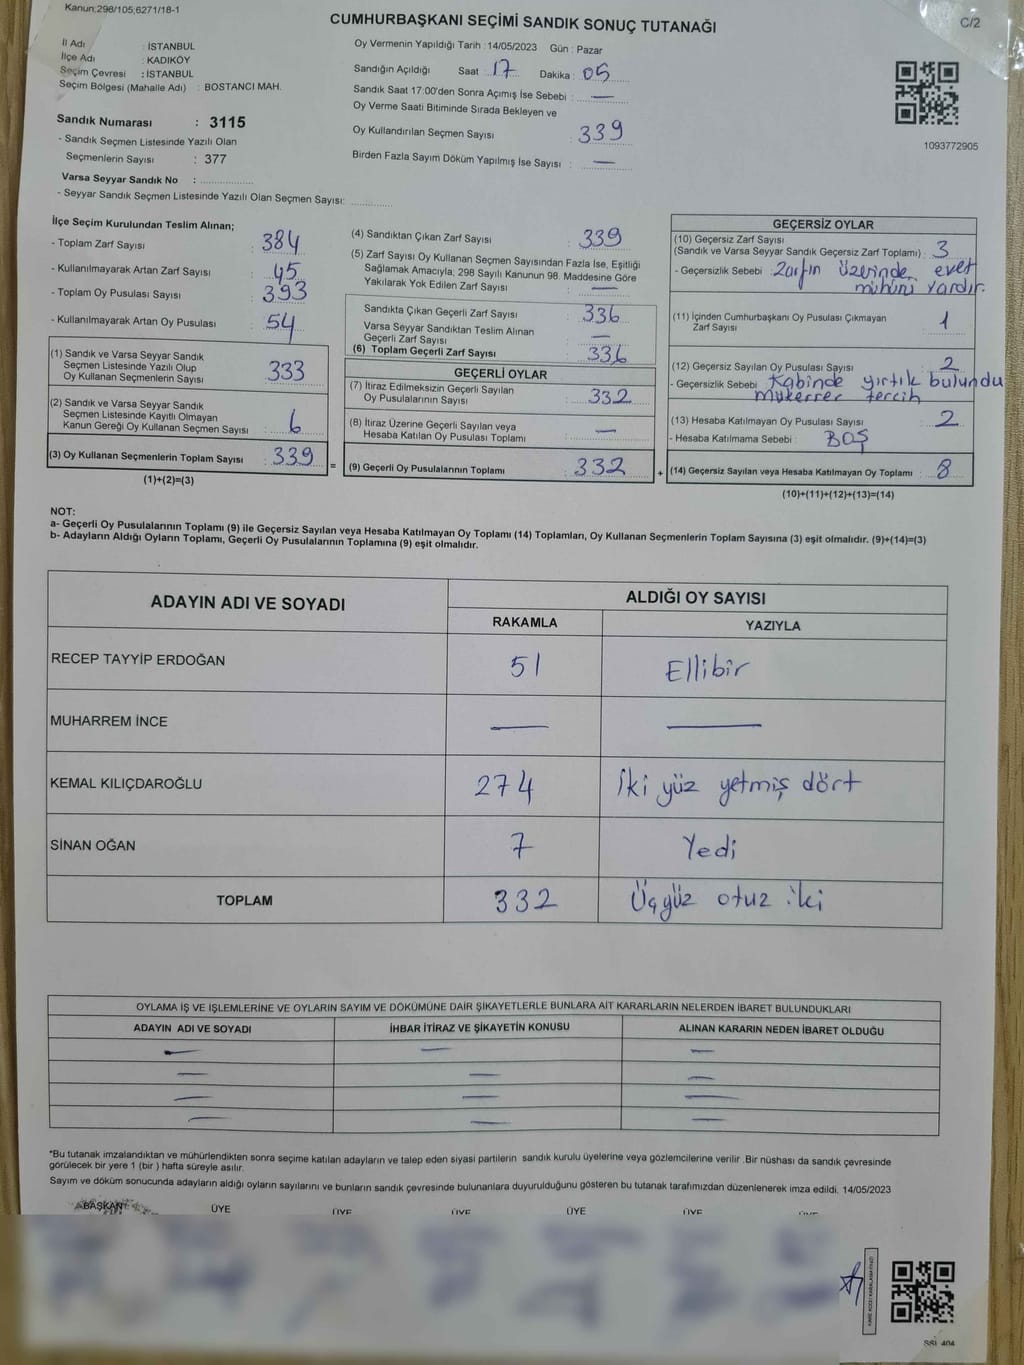 Kanun:298/105,6271/18-1
CUMHURBAŞKANI SEÇİMİ SANDIK SONUÇ TUTANAĞI
C/2
İl Adı : İSTANBUL
İlçe Adı : KADIKÖY
Seçim Çevresi : İSTANBUL
Seçim Bölgesi (Mahalle Adı) : BOSTANCI MAH.
Sandık Numarası : 3115
- Sandık Seçmen Listesinde Yazılı Olan
Seçmenlerin Sayısı : 377
Varsa Seyyar Sandık No :
- Seyyar Sandık Seçmen Listesinde Yazılı Olan Seçmen Sayısı:
Oy Vermenin Yapıldığı Tarih : 14/05/2023 Gün : Pazar
Sandığın Açıldığı Saat 17 Dakika : 05
Sandık Saat 17:00'den Sonra Açımış İse Sebebi : —
Oy Verme Saati Bitiminde Sırada Bekleyen ve
Oy Kullandırılan Seçmen Sayısı : 339
Birden Fazla Sayım Döküm Yapılmış İse Sayısı : —
1093772905
İlçe Seçim Kurulundan Teslim Alınan;
- Toplam Zarf Sayısı : 384
- Kullanılmayarak Artan Zarf Sayısı : 45
- Toplam Oy Pusulası Sayısı : 393
- Kullanılmayarak Artan Oy Pusulası : 54
(1) Sandık ve Varsa Seyyar Sandık
Seçmen Listesinde Yazılı Olup
Oy Kullanan Seçmenlerin Sayısı : 333
(2) Sandık ve Varsa Seyyar Sandık
Seçmen Listesinde Kayıtlı Olmayan
Kanun Gereği Oy Kullanan Seçmen Sayısı : 6
(3) Oy Kullanan Seçmenlerin Toplam Sayısı : 339
(1)+(2)=(3)
=
(4) Sandıktan Çıkan Zarf Sayısı : 339
(5) Zarf Sayısı Oy Kullanan Seçmen Sayısından Fazla İse, Eşitliği
Sağlamak Amacıyla; 298 Sayılı Kanunun 98. Maddesine Göre
Yakılarak Yok Edilen Zarf Sayısı : —
Sandıkta Çıkan Geçerli Zarf Sayısı : 336
Varsa Seyyar Sandıktan Teslim Alınan
Geçerli Zarf Sayısı : —
(6) Toplam Geçerli Zarf Sayısı : 336
GEÇERLİ OYLAR
(7) İtiraz Edilmeksizin Geçerli Sayılan
Oy Pusulalarının Sayısı : 332
(8) İtiraz Üzerine Geçerli Sayılan veya
Hesaba Katılan Oy Pusulası Toplamı : —
(9) Geçerli Oy Pusulalarının Toplamı : 332
+
GEÇERSİZ OYLAR
(10) Geçersiz Zarf Sayısı
(Sandık ve Varsa Seyyar Sandık Geçersiz Zarf Toplamı) : 3
- Geçersizlik Sebebi : Zarfın üzerinde evet
mühürü vardır.
(11) İçinden Cumhurbaşkanı Oy Pusulası Çıkmayan
Zarf Sayısı : 1
(12) Geçersiz Sayılan Oy Pusulası Sayısı : 2
- Geçersizlik Sebebi : Kabinde yırtık bulundu
mükerrer tercih
(13) Hesaba Katılmayan Oy Pusulası Sayısı : 2
- Hesaba Katılmama Sebebi : BOŞ
(14) Geçersiz Sayılan veya Hesaba Katılmayan Oy Toplamı : 8
(10)+(11)+(12)+(13)=(14)
NOT:
a- Geçerli Oy Pusulalarının Toplamı (9) ile Geçersiz Sayılan veya Hesaba Katılmayan Oy Toplamı (14) Toplamları, Oy Kullanan Seçmenlerin Toplam Sayısına (3) eşit olmalıdır. (9)+(14)=(3)
b- Adayların Aldığı Oyların Toplamı, Geçerli Oy Pusulalarının Toplamına (9) eşit olmalıdır.
ADAYIN ADI VE SOYADI
ALDIĞI OY SAYISI
RAKAMLA YAZIYLA
RECEP TAYYİP ERDOĞAN 51 Ellibir
MUHARREM İNCE — —
KEMAL KILIÇDAROĞLU 274 İki yüz yetmiş dört
SİNAN OĞAN 7 Yedi
TOPLAM 332 Üçyüz otuz iki
OYLAMA İŞ VE İŞLEMLERİNE VE OYLARIN SAYIM VE DÖKÜMÜNE DAİR ŞİKAYETLERLE BUNLARA AİT KARARLARIN NELERDEN İBARET BULUNDUKLARI
ADAYIN ADI VE SOYADI İHBAR İTİRAZ VE ŞİKAYETİN KONUSU ALINAN KARARIN NEDEN İBARET OLDUĞU
— — —
— — —
— — —
— — —
*Bu tutanak imzalandıktan ve mühürlendikten sonra seçime katılan adayların ve talep eden siyasi partilerin sandık kurulu üyelerine veya gözlemcilerine verilir .Bir nüshası da sandık çevresinde
görülecek bir yere 1 (bir ) hafta süreyle asılır.
Sayım ve döküm sonucunda adayların aldığı oyların sayılarını ve bunların sandık çevresinde bulunanlara duyurulduğunu gösteren bu tutanak tarafımızdan düzenlenerek imza edildi. 14/05/2023
BAŞKAN ÜYE ÜYE ÜYE ÜYE ÜYE